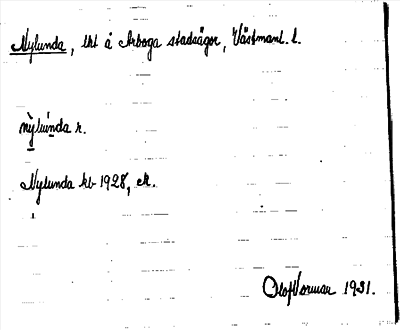 Nylunda, lht å Arboga stadsägor, Västmanl. l.
nỳluńda r.
Nylunda kb 1928, ek.
Olof Vormar 1931.